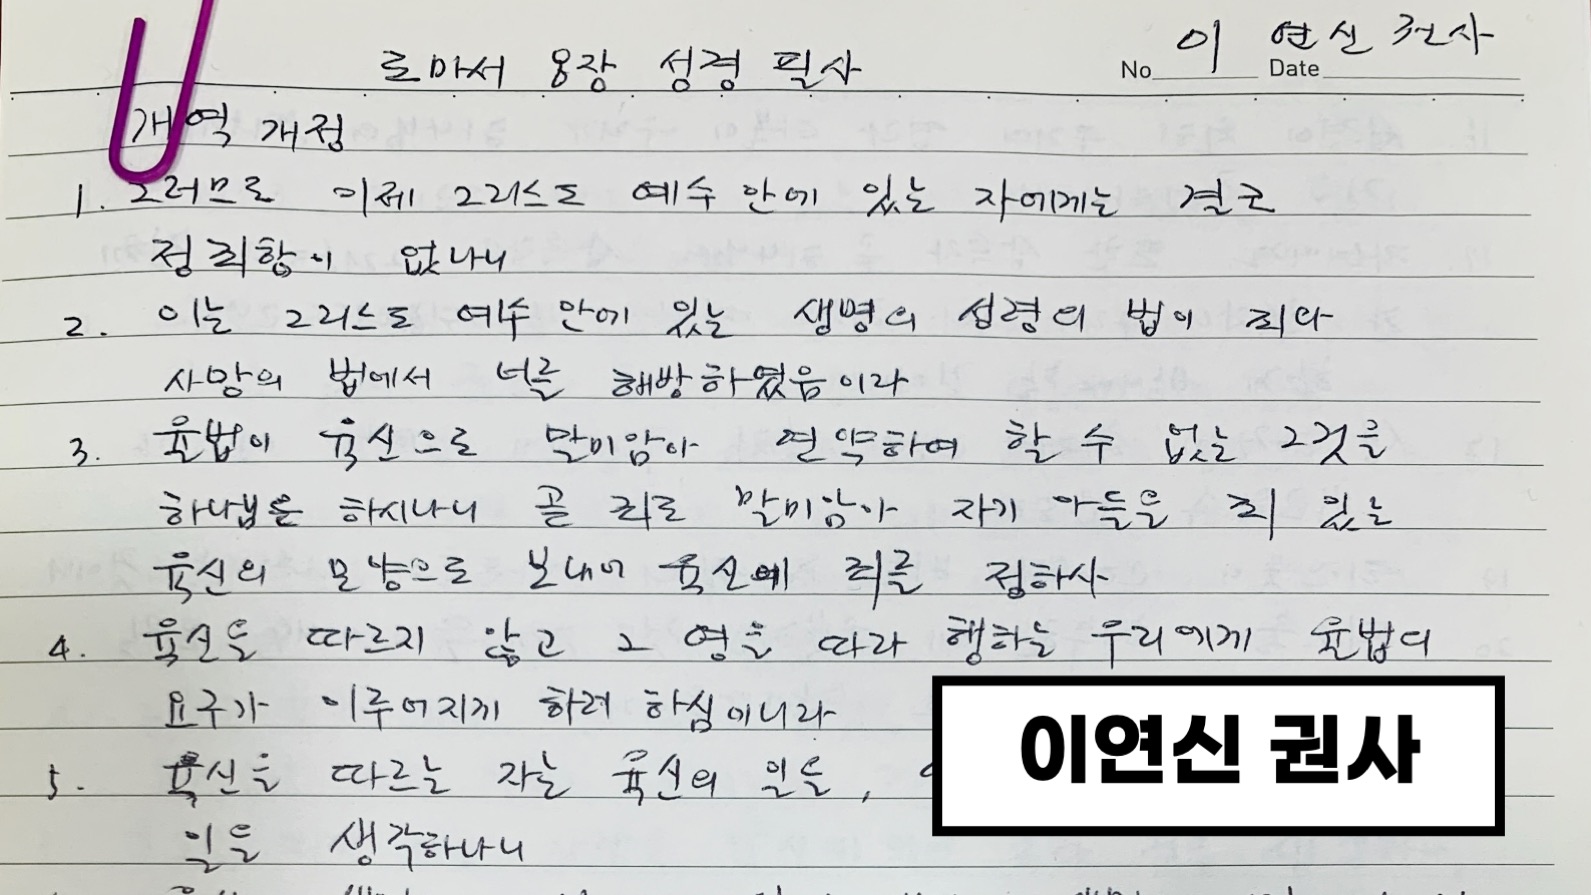 로마서 8장 성경 필사
No 이 연신 권사 Date
개역 개정
1. 그러므로 이제 그리스도 예수 안에 있는 자에게는 결코
정죄함이 없나니
2. 이는 그리스도 예수 안에 있는 생명의 성령의 법이 죄와
사망의 법에서 너를 해방하였음이라
3. 율법이 육신으로 말미암아 연약하여 할 수 없는 그것을
하나님은 하시나니 곧 죄로 말미암아 자기 아들을 죄 있는
육신의 모양으로 보내어 육신에 죄를 정하사
4. 육신을 따르지 않고 그 영을 따라 행하는 우리에게 율법의
요구가 이루어지게 하려 하심이니라
이연신 권사
5. 육신을 따르는 자는 육신의 일을,
일을 생각하나니